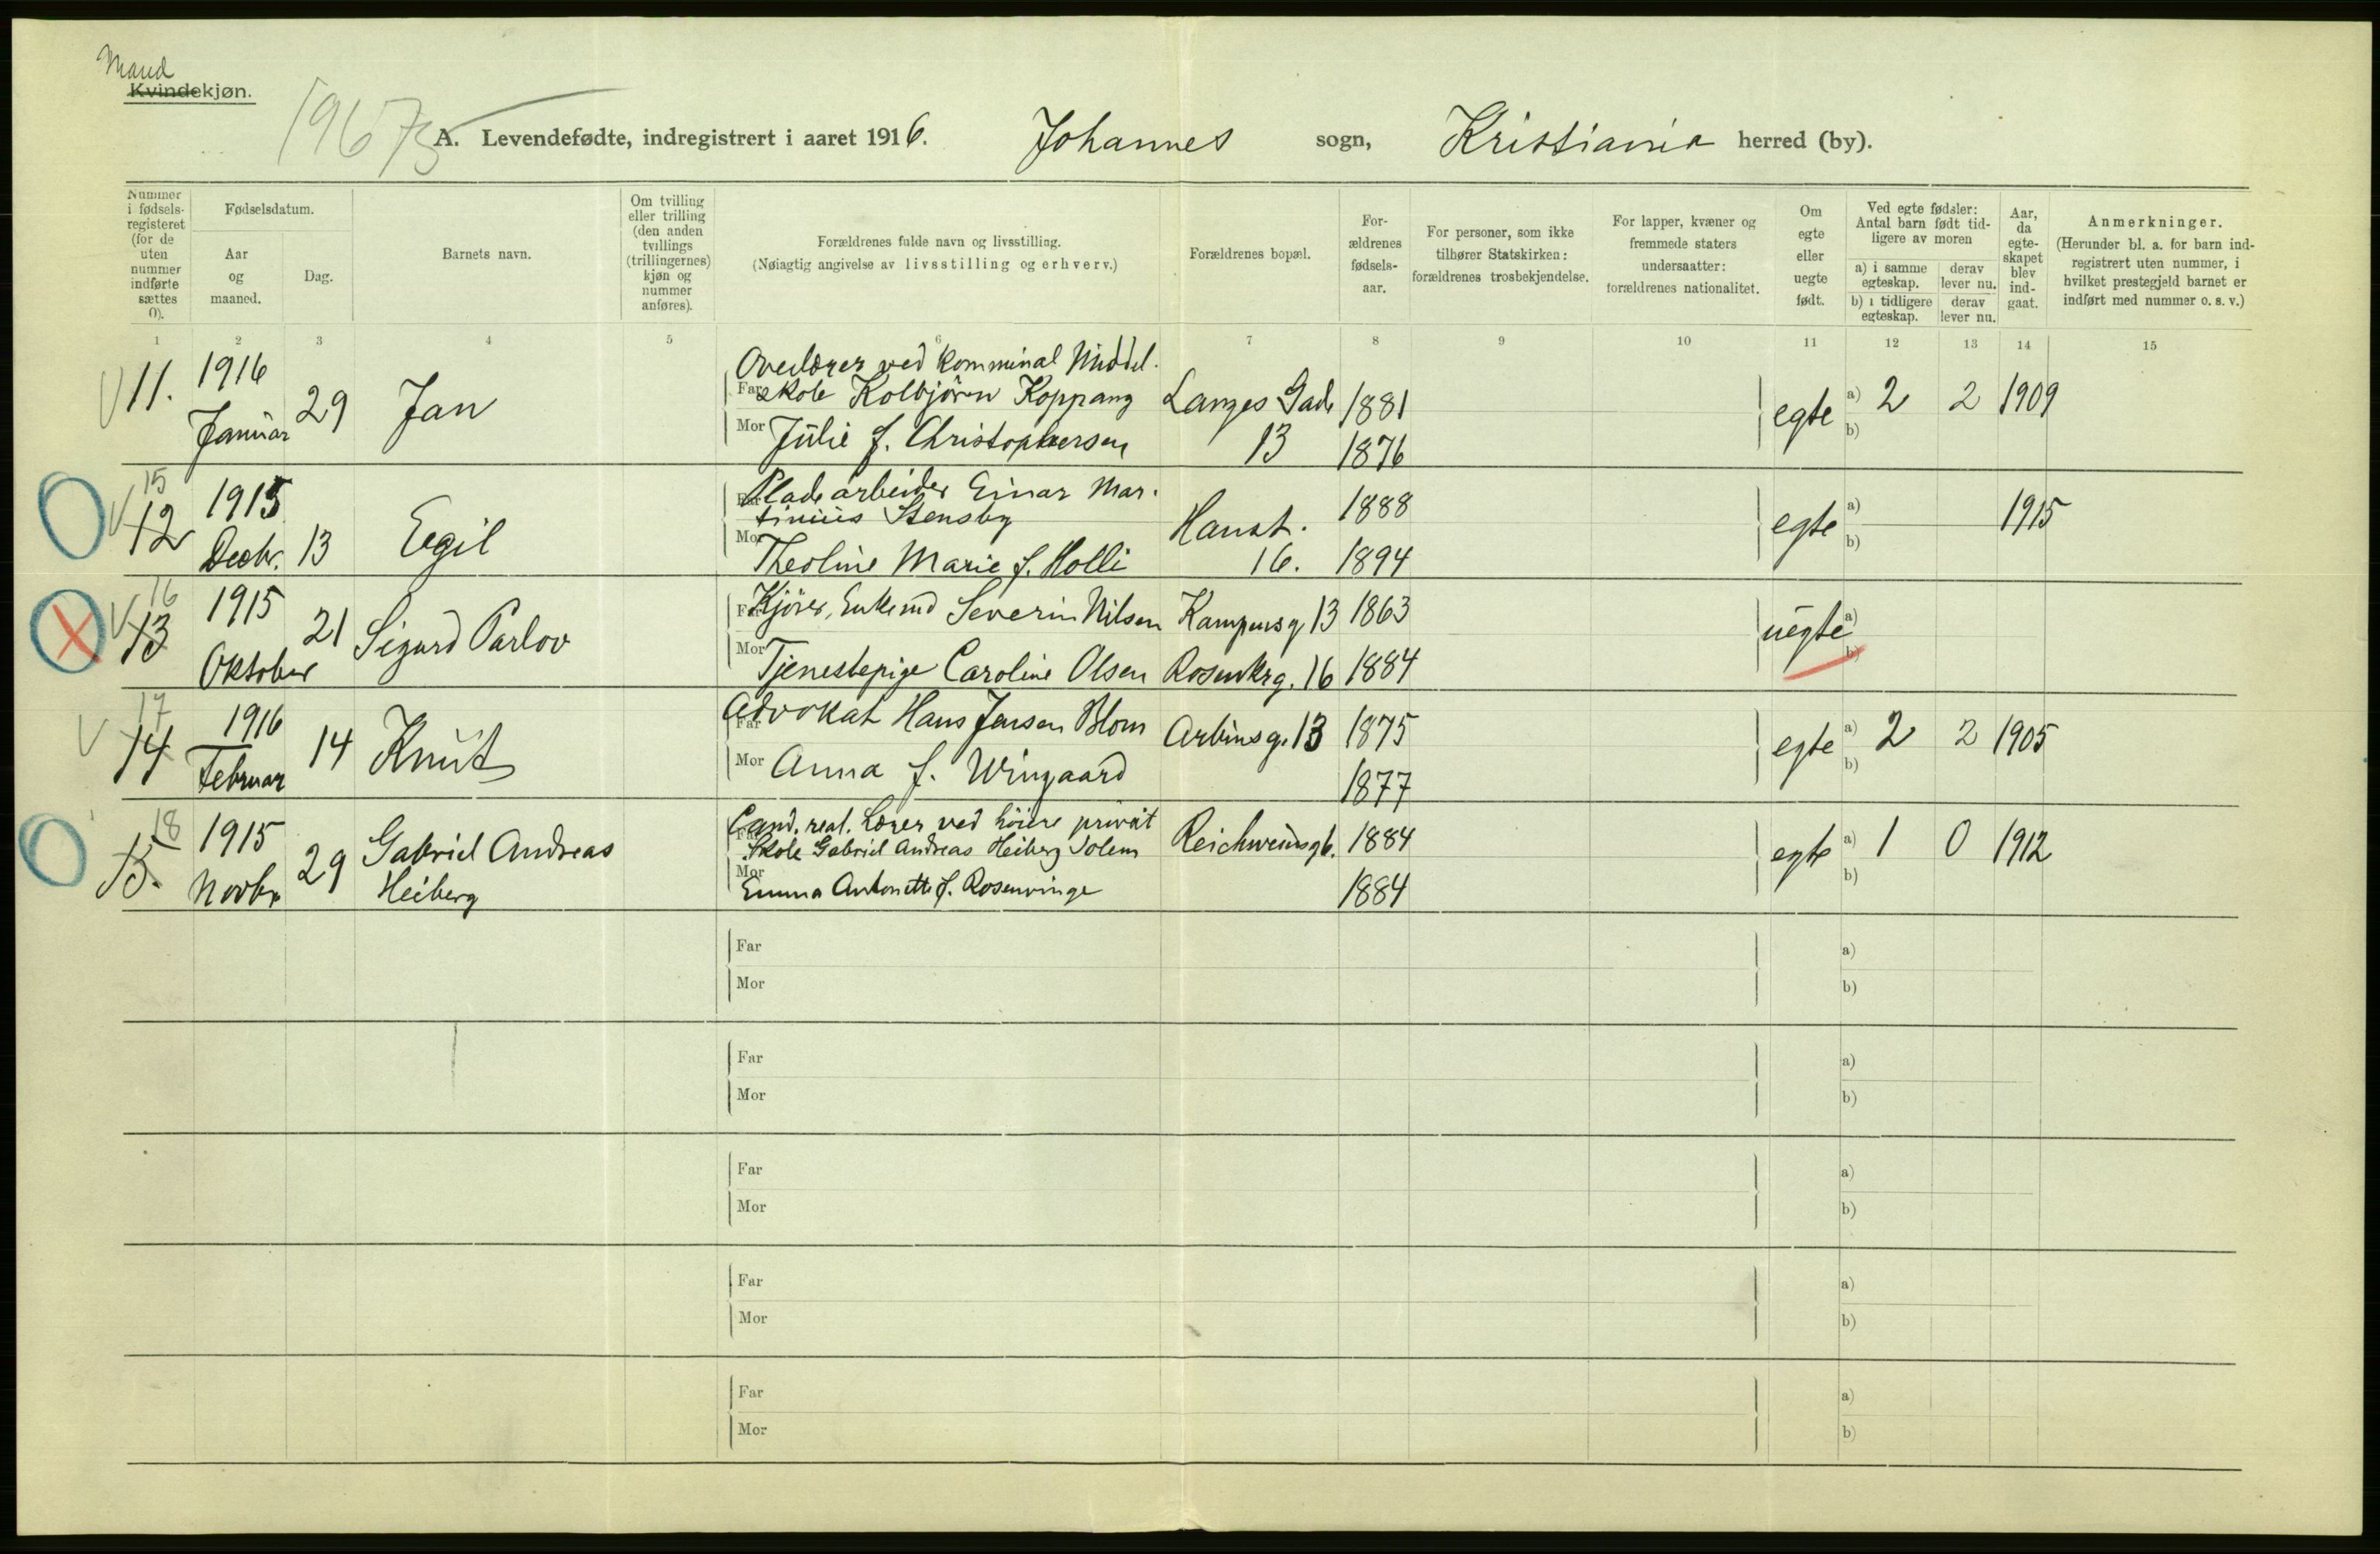 Mand
Kvindekjøn.
19675
A. Levendefødte, indregistrert i aaret 1916. Johannes sogn, Kristiania herred (by).
Nummer i fødsels-registeret (for de uten nummer indførte sættes 0).
Fødselsdatum.
Aar og maaned.
Dag.
Barnets navn.
Om tvilling eller trilling (den anden tvillings (trillingernes) kjøn og nummer anføres).
Forældrenes fulde navn og livsstilling.
(Nøiagtig angivelse av livsstilling og erhverv.)
Forældrenes bopæl.
For-ældrenes fødsels-aar.
For personer, som ikke tilhører Statskirken: forældrenes trosbekjendelse.
For lapper, kvæner og fremmede staters undersaatter: forældrenes nationalitet.
Om egte eller uegte født.
Ved egte fødsler: Antal barn født tid-ligere av moren
a) i samme egteskap.
derav lever nu.
b) i tidligere egteskap.
derav lever nu.
Aar, da egte-skapet blev ind-gaat.
Anmerkninger.
(Herunder bl. a. for barn ind-registrert uten nummer, i hvilket prestegjeld barnet er indført med nummer o. s. v.)
1 2 3 4 5 6 7 8 9 10 11 12 13 14 15
Overlærer ved kommunal Middel-
11. 1916 Januar 29 Jan
Far skole Kolbjörn Koppang Langes Gade 1881 egte a) 2 2 1909
Mor Julie f. Christophersen 13 1876 b)
15
12 1915 Decbr. 13 Egil
Far Pladearbeider Einar Mar-
tinius Stensby Hanst. 1888 egte a) 1915
Mor Theoline Marie f. Holli 16. 1894 b)
16
13 1915 Oktober 21 Sigurd Parlov
Far Kjörer, Enkemd Severin Nilsen Kampensg 13 1863 uegte a)
Mor Tjenestepige Caroline Olsen Rosenkrg. 16 1884 b)
17
14 1916 Februar 14 Knut
Far Advokat Hans Jensen Blom Arbinsg. 13 1875 egte a) 2 2 1905
Mor Anna f. Wingaard 1877 b)
18
15. 1915 Novbr 29 Gabriel Andreas Heiberg
Far Cand. real. Lærer ved höiere privat
Skole Gabriel Andreas Heiberg Solem Reichweinsg 6. 1884 egte a) 1 0 1912
Mor Emma Antonette f. Rosenvinge 1884 b)
Far a)
Mor b)
Far a)
Mor b)
Far a)
Mor b)
Far a)
Mor b)
Far a)
Mor b)